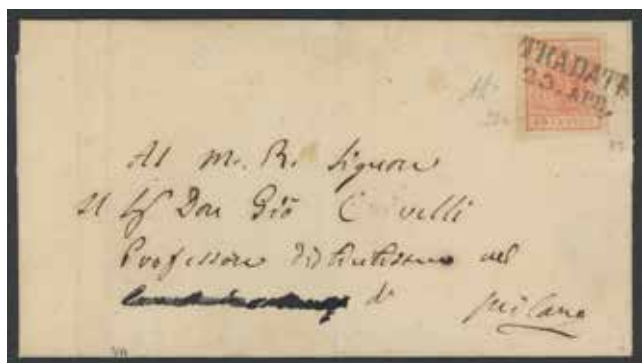 TRADATE
23. APR.
Al M. R. Signore
Il Sig Don Giõ C velli
Professore distintissimo nel
di Milano